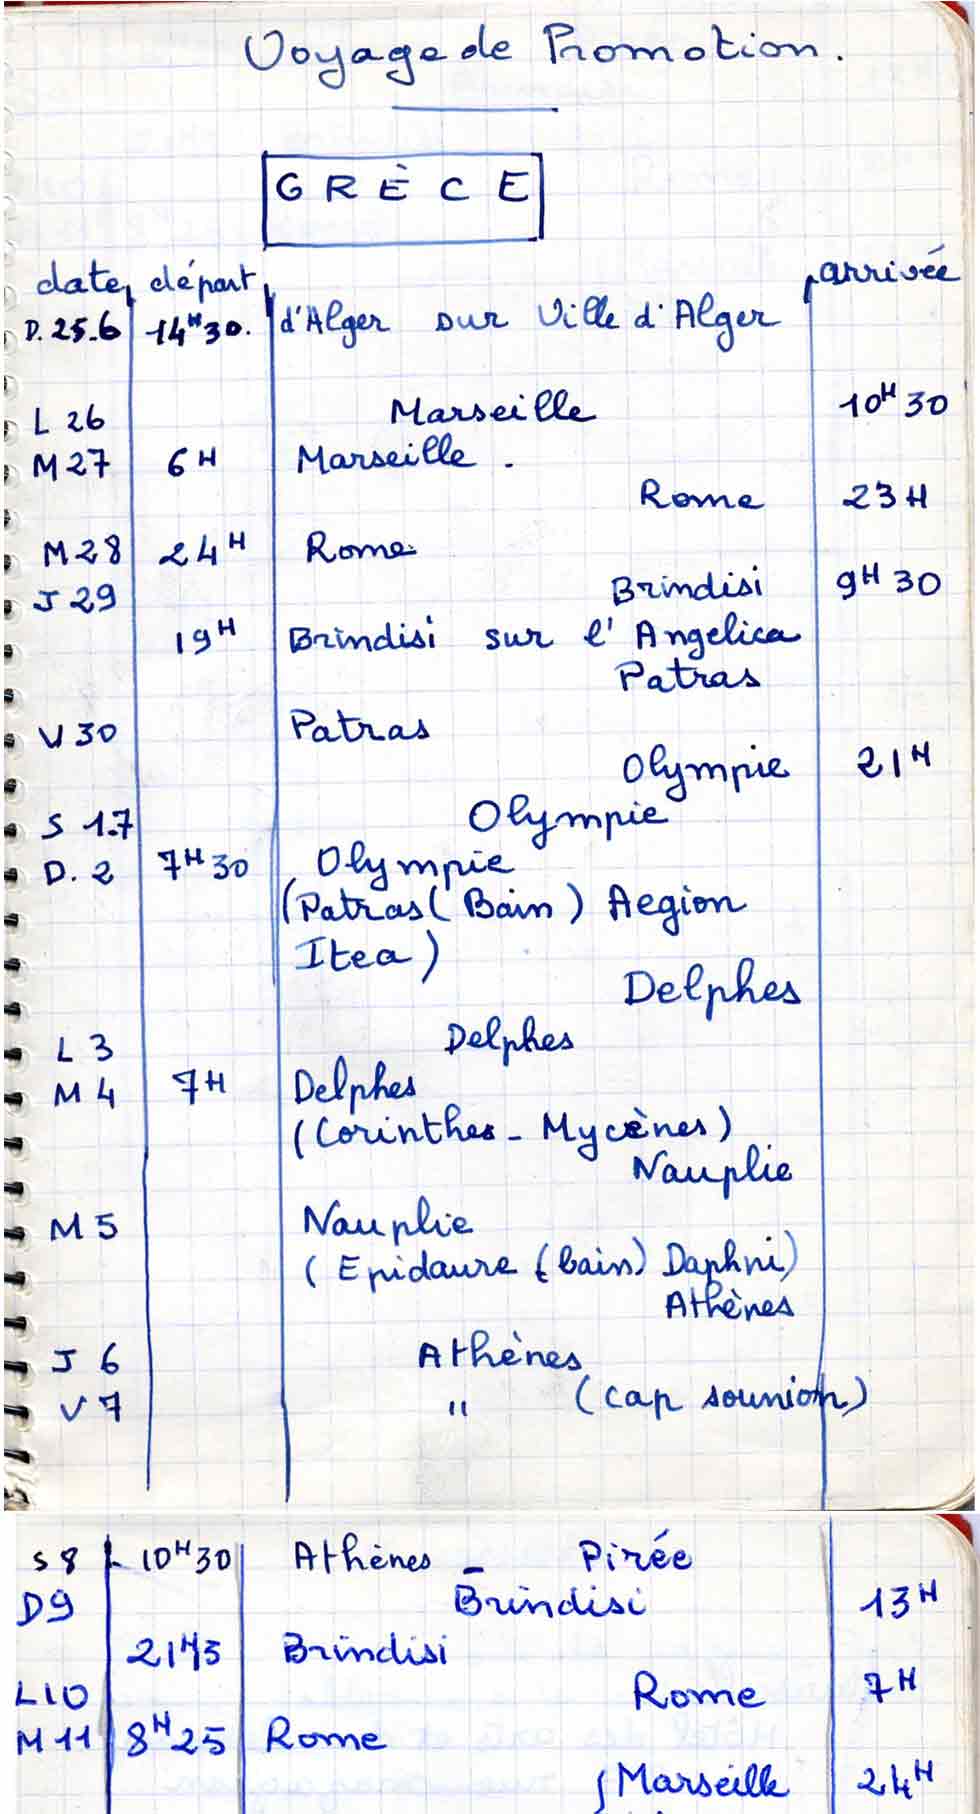 Voyage de Promotion.
GRÈCE
date départ arrivée
D. 25.6 14H30. d'Alger sur Ville d'Alger
L 26 Marseille 10H30
M 27 6H Marseille.
Rome 23H
M 28 24H Rome.
J 29 Brindisi 9H30
19H Brindisi sur l'Angelica
Patras
V 30 Patras
Olympie 21H
S 1.7 Olympie
D. 2 7H30 Olympie
(Patras (Bain) Aegion
Itea)
Delphes
L 3 Delphes
M 4 7H Delphes
(Corinthes - Mycènes)
Nauplie
M 5 Nauplie
(Epidaure (bain) Daphni)
Athènes
J 6 Athènes
V 7 " (cap sounion)
S 8 10H30 Athènes - Pirée
D 9 Brindisi 13H
Brindisi
L 10 Rome 7H
M 11 8H25 Rome
Marseille 24H